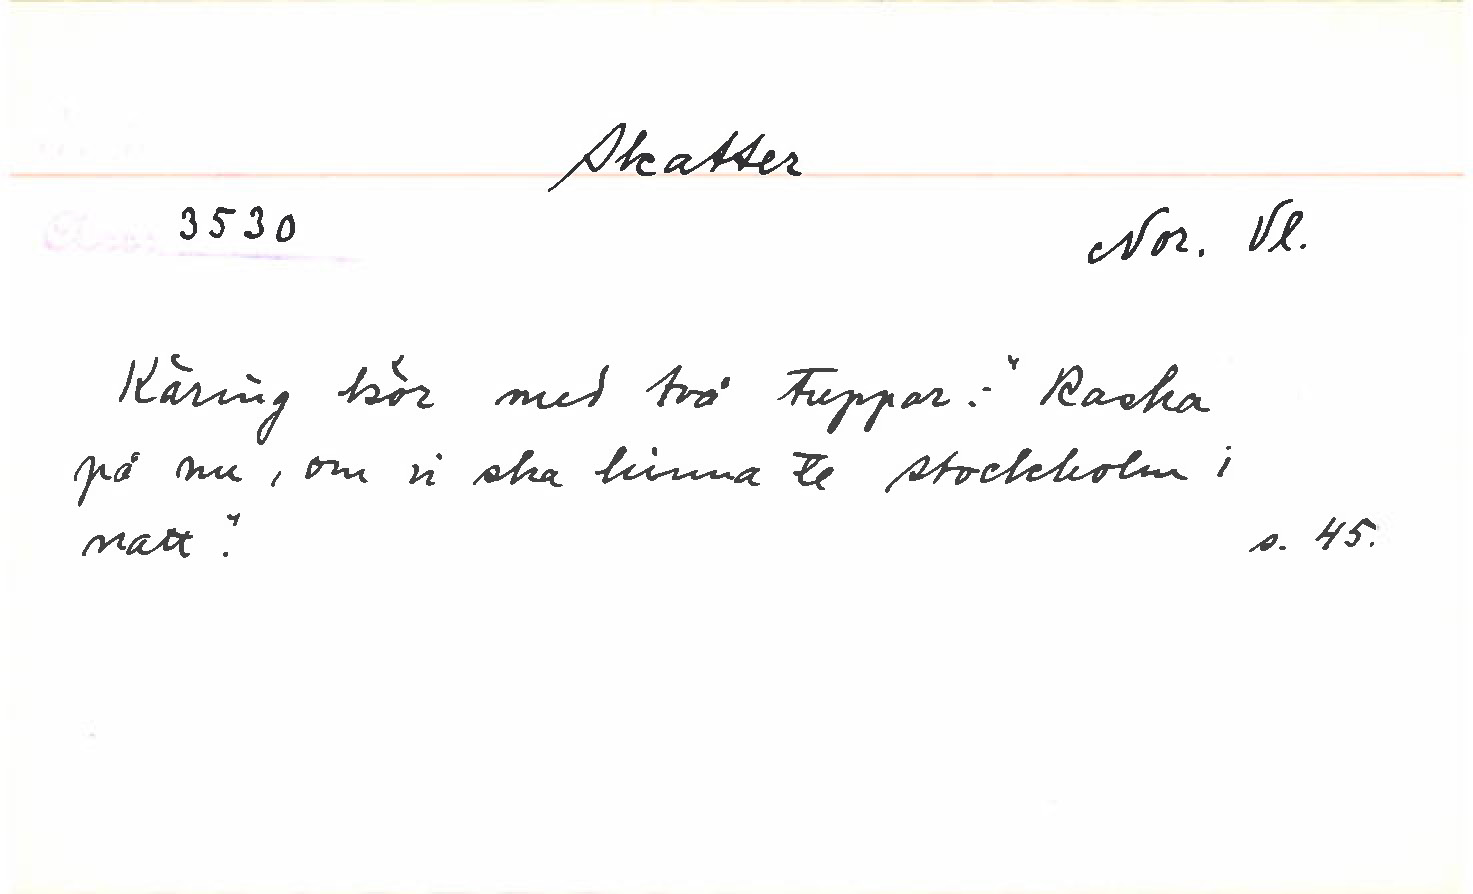 Skatter
3530
Nor. Vl.
Käring kör med två tuppar:-"Raska
på nu, om vi ska hinna te Stockholm i
natt."
s. 45.